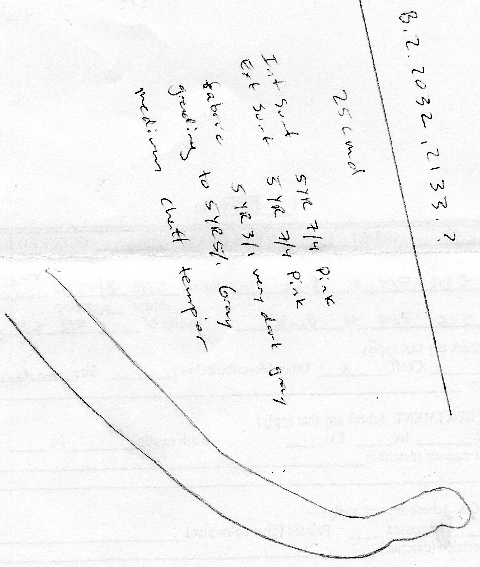 B.2.2032.12133.2
25cmd
Int Surf 5YR 7/4 Pink
Ext Surf 5YR 7/4 Pink
fabric 5YR 3/1 very dark gray
grading to 5YR5/1 Gray
medium chaff temper